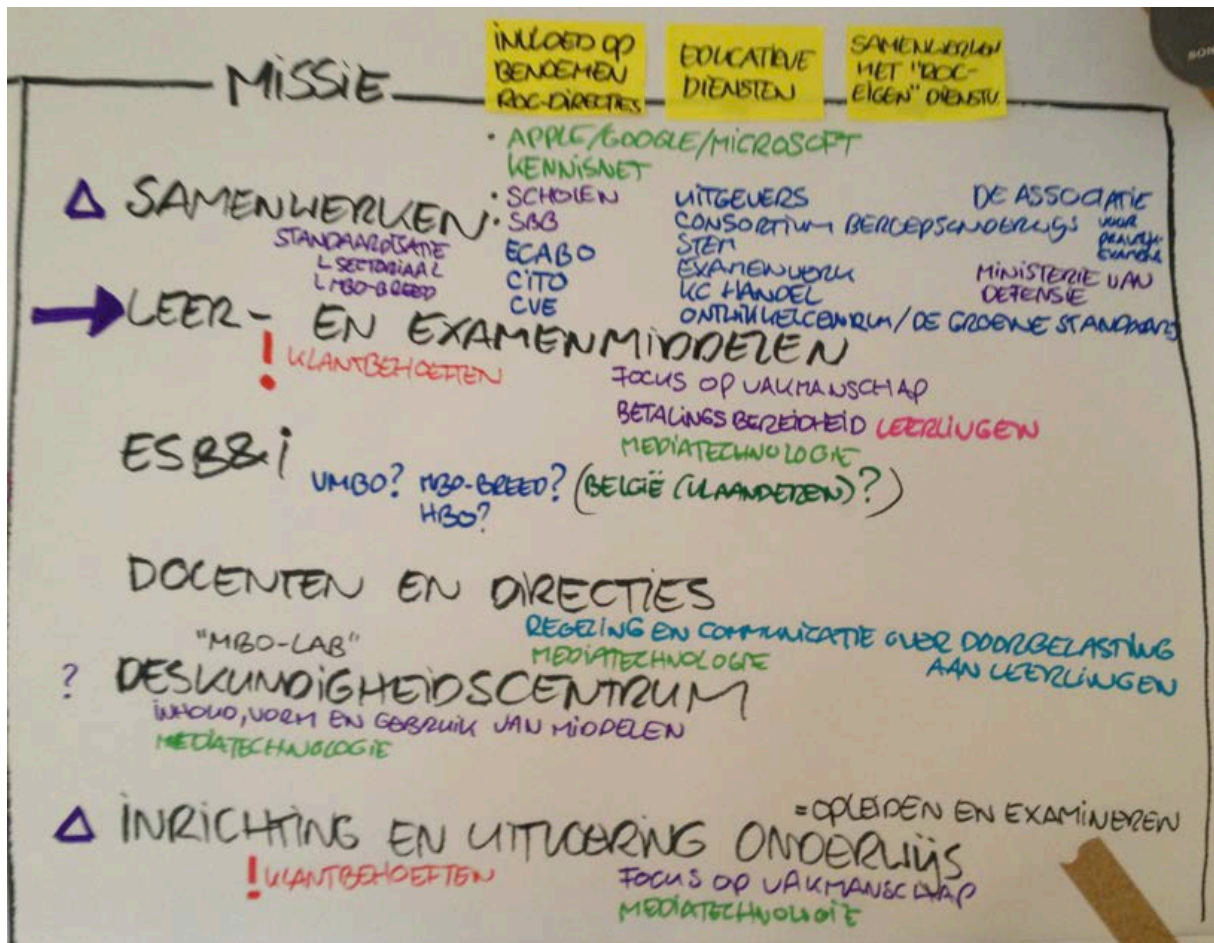 MISSIE
INVLOED OP
BENOEMEN
ROC-DIRECTIES
EDUCATIEVE
DIENSTEN
SAMENWERKEN
MET "ROC-
EIGEN" DIENSTV.
• APPLE/GOOGLE/MICROSOFT
KENNISNET
Δ SAMENWERKEN
STANDAARDISATIE
L SECTORIAAL
L MBO-BREED
• SCHOLEN
• SBB
ECABO
CITO
CVE
UITGEVERS
CONSORTIUM BEROEPSONDERWIJS
STEM
EXAMENWERK
KC HANDEL
ONTWIKKELCENTRUM/DE GROENE STANDAARD
DE ASSOCIATIE
VOOR
PRAKTIJK-
EXAMENS
MINISTERIE VAN
DEFENSIE
LEER- EN EXAMENMIDDELEN
! KLANTBEHOEFTEN
FOCUS OP VAKMANSCHAP
BETALINGSBEREIDHEID LEERLINGEN
MEDIATECHNOLOGIE
ESB&I
VMBO? MBO-BREED? (BELGIË (VLAANDEREN)?)
HBO?
DOCENTEN EN DIRECTIES
REGELING EN COMMUNICATIE OVER DOORBELASTING
AAN LEERLINGEN
MEDIATECHNOLOGIE
"MBO-LAB"
? DESKUNDIGHEIDSCENTRUM
INHOUD, VORM EN GEBRUIK VAN MIDDELEN
MEDIATECHNOLOGIE
= OPLEIDEN EN EXAMINEREN
Δ INRICHTING EN UITVOERING ONDERWIJS
! KLANTBEHOEFTEN
FOCUS OP VAKMANSCHAP
MEDIATECHNOLOGIE